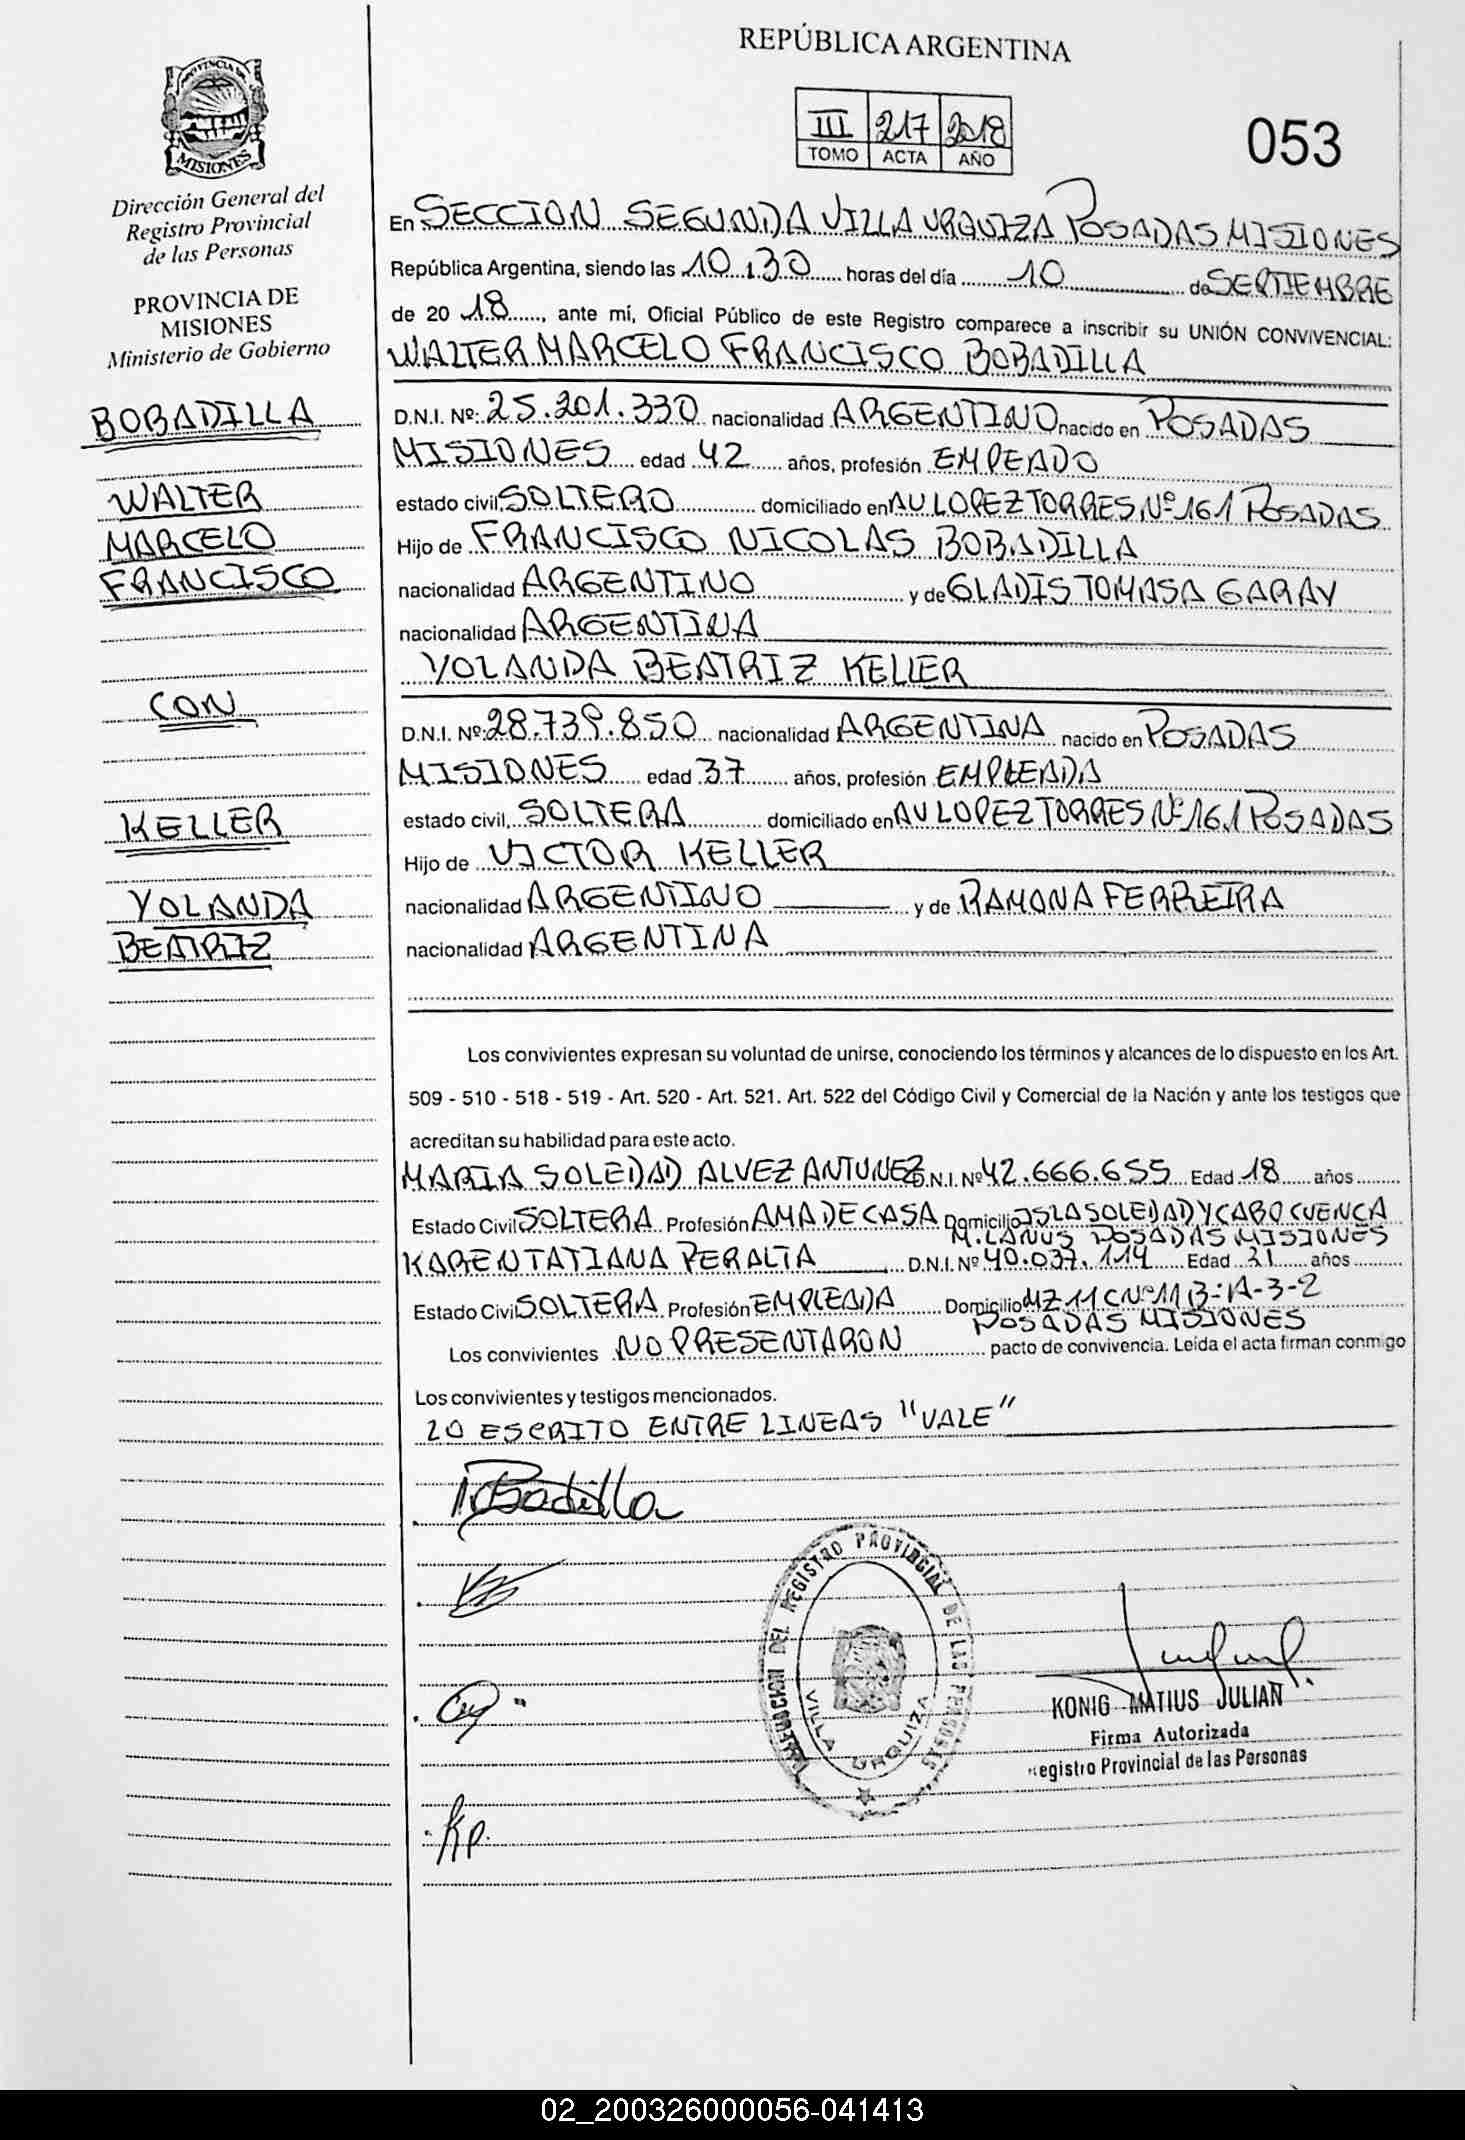 REPÚBLICA ARGENTINA
III 217 2018
TOMO ACTA AÑO
053
PROVINCIA DE
MISIONES
Dirección General del
Registro Provincial
de las Personas
PROVINCIA DE
MISIONES
Ministerio de Gobierno
BOBADILLA
WALTER
MARCELO
FRANCISCO
CON
KELLER
YOLANDA
BEATRIZ
En SECCION SEGUNDA VILLA URQUIZA POSADAS MISIONES
República Argentina, siendo las 10:30 horas del día 10 de SEPTIEMBRE
de 20 18, ante mí, Oficial Público de este Registro comparece a inscribir su UNIÓN CONVIVENCIAL:
WALTER MARCELO FRANCISCO BOBADILLA
D.N.I. Nº: 25.201.330 nacionalidad ARGENTINO nacido en POSADAS
MISIONES edad 42 años, profesión EMPEADO
estado civil, SOLTERO domiciliado en AV LOPEZ TORRES Nº 161 POSADAS
Hijo de FRANCISCO NICOLAS BOBADILLA
nacionalidad ARGENTINO y de GLADIS TOMASA GARAY
nacionalidad ARGENTINA
YOLANDA BEATRIZ KELLER
D.N.I. Nº: 28.739.850 nacionalidad ARGENTINA nacido en POSADAS
MISIONES edad 37 años, profesión EMPLEADA
estado civil, SOLTERA domiciliado en AV LOPEZ TORRES Nº 161 POSADAS
Hijo de VICTOR KELLER
nacionalidad ARGENTINO y de RAMONA FERREIRA
nacionalidad ARGENTINA
Los convivientes expresan su voluntad de unirse, conociendo los términos y alcances de lo dispuesto en los Art.
509 - 510 - 518 - 519 - Art. 520 - Art. 521. Art. 522 del Código Civil y Comercial de la Nación y ante los testigos que
acreditan su habilidad para este acto.
MARIA SOLEDAD ALVEZ ANTUNEZ D.N.I. Nº 42.666.655 Edad 18 años
Estado Civil SOLTERA Profesión AMA DE CASA Domicilio ISLA SOLEDAD Y CABO CUENCA
M. LANUS POSADAS MISIONES
KAREN TATIANA PERALTA D.N.I. Nº 40.037.114 Edad 21 años
Estado Civil SOLTERA Profesión EMPLEADA Domicilio MZ 11 C Nº 11 B: IA-3-2
POSADAS MISIONES
Los convivientes NO PRESENTARON pacto de convivencia. Leída el acta firman conmigo
Los convivientes y testigos mencionados.
LO ESCRITO ENTRE LINEAS "VALE"
Badilla
Kp.
DEL REGISTRO PROVINCIAL DE LAS PERSONAS
VILLA URQUIZA
KONIG MATIUS JULIAN
Firma Autorizada
Registro Provincial de las Personas
02_200326000056-041413